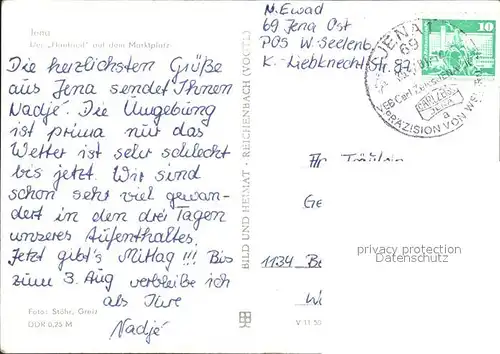 Jena
Der „Hanfried" auf dem Marktplatz
Die herzlichsten Grüße
aus Jena sendet Ihnen
Nadjé. Die Umgebung
ist prima nur das
Wetter ist sehr schlecht
bis jetzt. Wir sind
schon sehr viel gewan-
dert in den drei Tagen
unseres Aufenthaltes.
Jetzt gibt's Mittag !!! Bis
zum 3. Aug verbleibe ich
als Ihre
Nadjé
Foto: Stöhr, Greiz
DDR 0,25 M
BILD UND HEIMAT · REICHENBACH (VOGTL)
N. Ewad
69 Jena Ost
POS W. Seelenb
K.-Liebknecht Str. 87
JENA 1
69
VEB Carl Zeiss
CARL ZEISS
JENA
a
PRÄZISION VON WELTRUF
10
Fräulein
Ge
privacy protection
Datenschutz
1134 Be
V 11 50